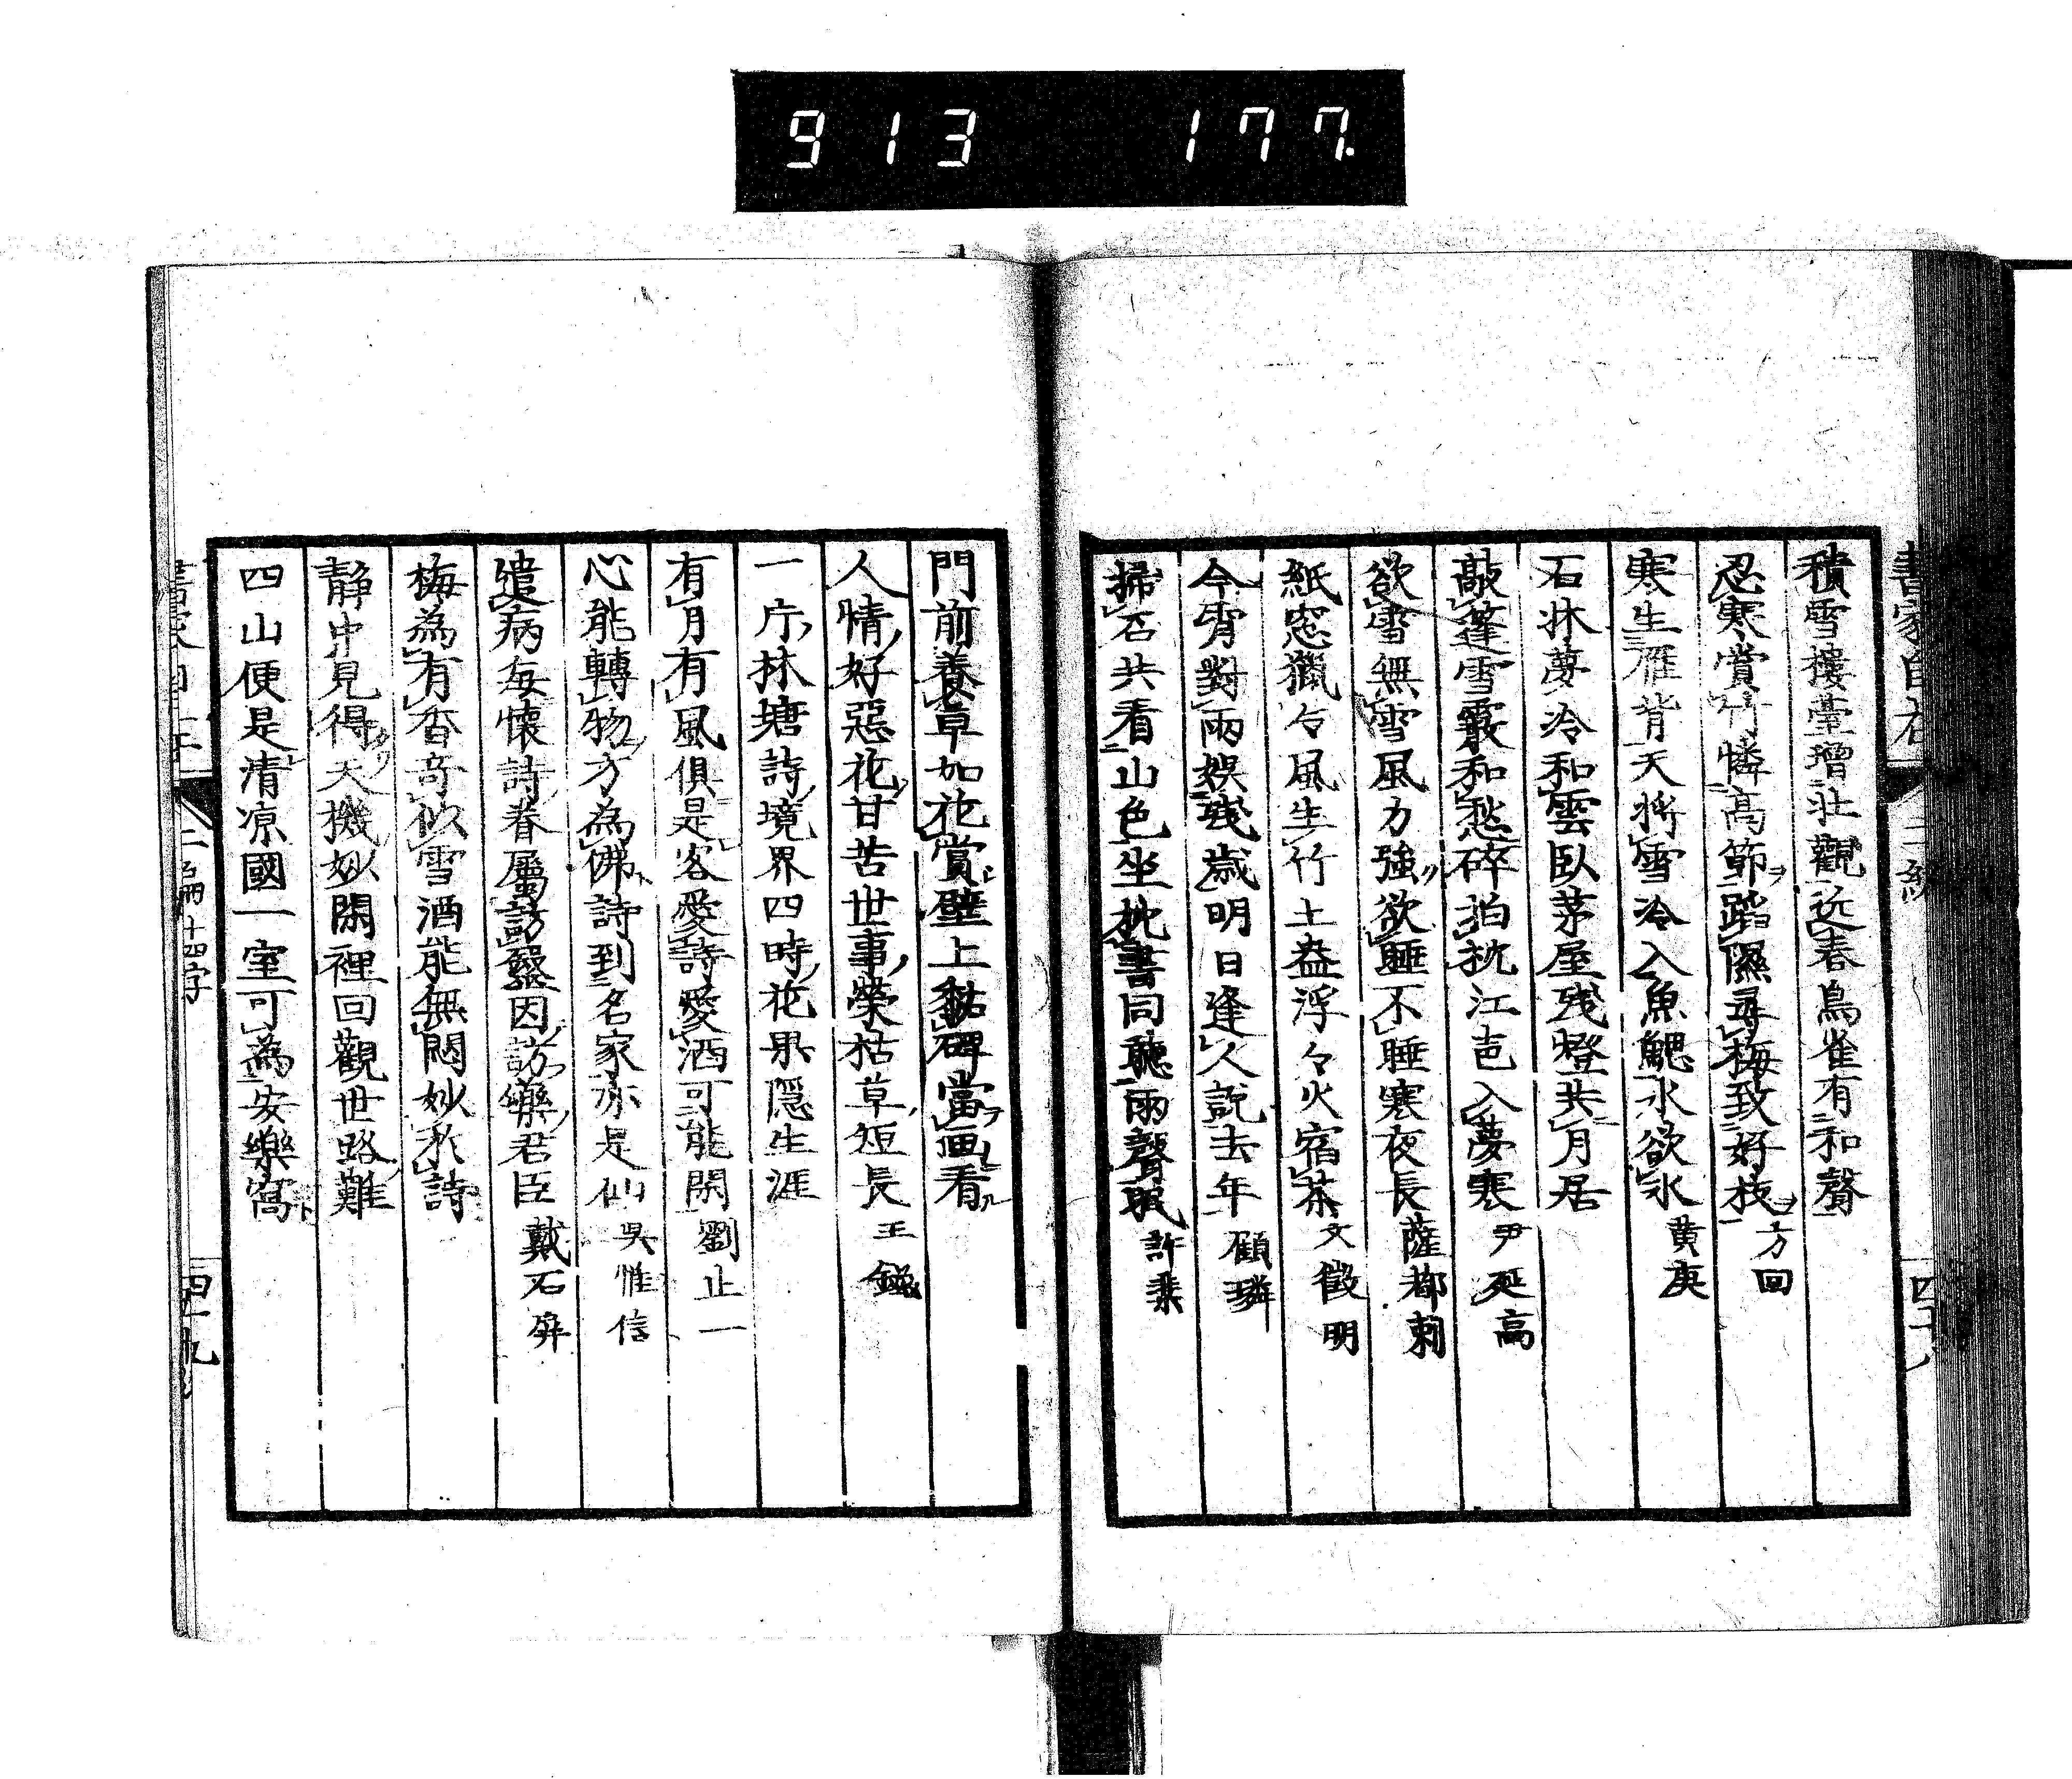 913 177.
積雪樓臺增壯觀近春鳥雀有和聲
忍寒賞竹憐高節蹈隰尋梅致好枝 方回
寒生雁背天將雪冷入魚鰓水欲氷 黄庚
石牀夢冷和雲臥茅屋残燈共月居
敲篷雪霰和愁碎拍枕江声入夢寒 尹延高
欲雪無雪風力強欲睡不睡寒夜長 薩都剌
紙窓獵々風生竹土盎浮々火宿茶 文徴明
今宵對雨娯残歳明日逢人説去年 顧璘
掃石共看山色坐枕書同聽雨聲眠 許棐
門前養草如花賞壁上黏碑當画看
人情好惡花甘苦世事榮枯草短長 王鎡
一庁林塘詩境界四時花果隠生涯
有月有風俱是客愛詩愛酒可能閑 劉止一
心能轉物方為佛詩到名家亦是仙 吳惟信
遣病每懐詩眷屬訪醫因訪藥君臣 戴石屏
梅為有香奇似雪酒能無悶妙於詩
靜中見得天機妙閑裡回觀世路難
四山便是清凉國一室可為安樂窩
二編 十四字
四十九